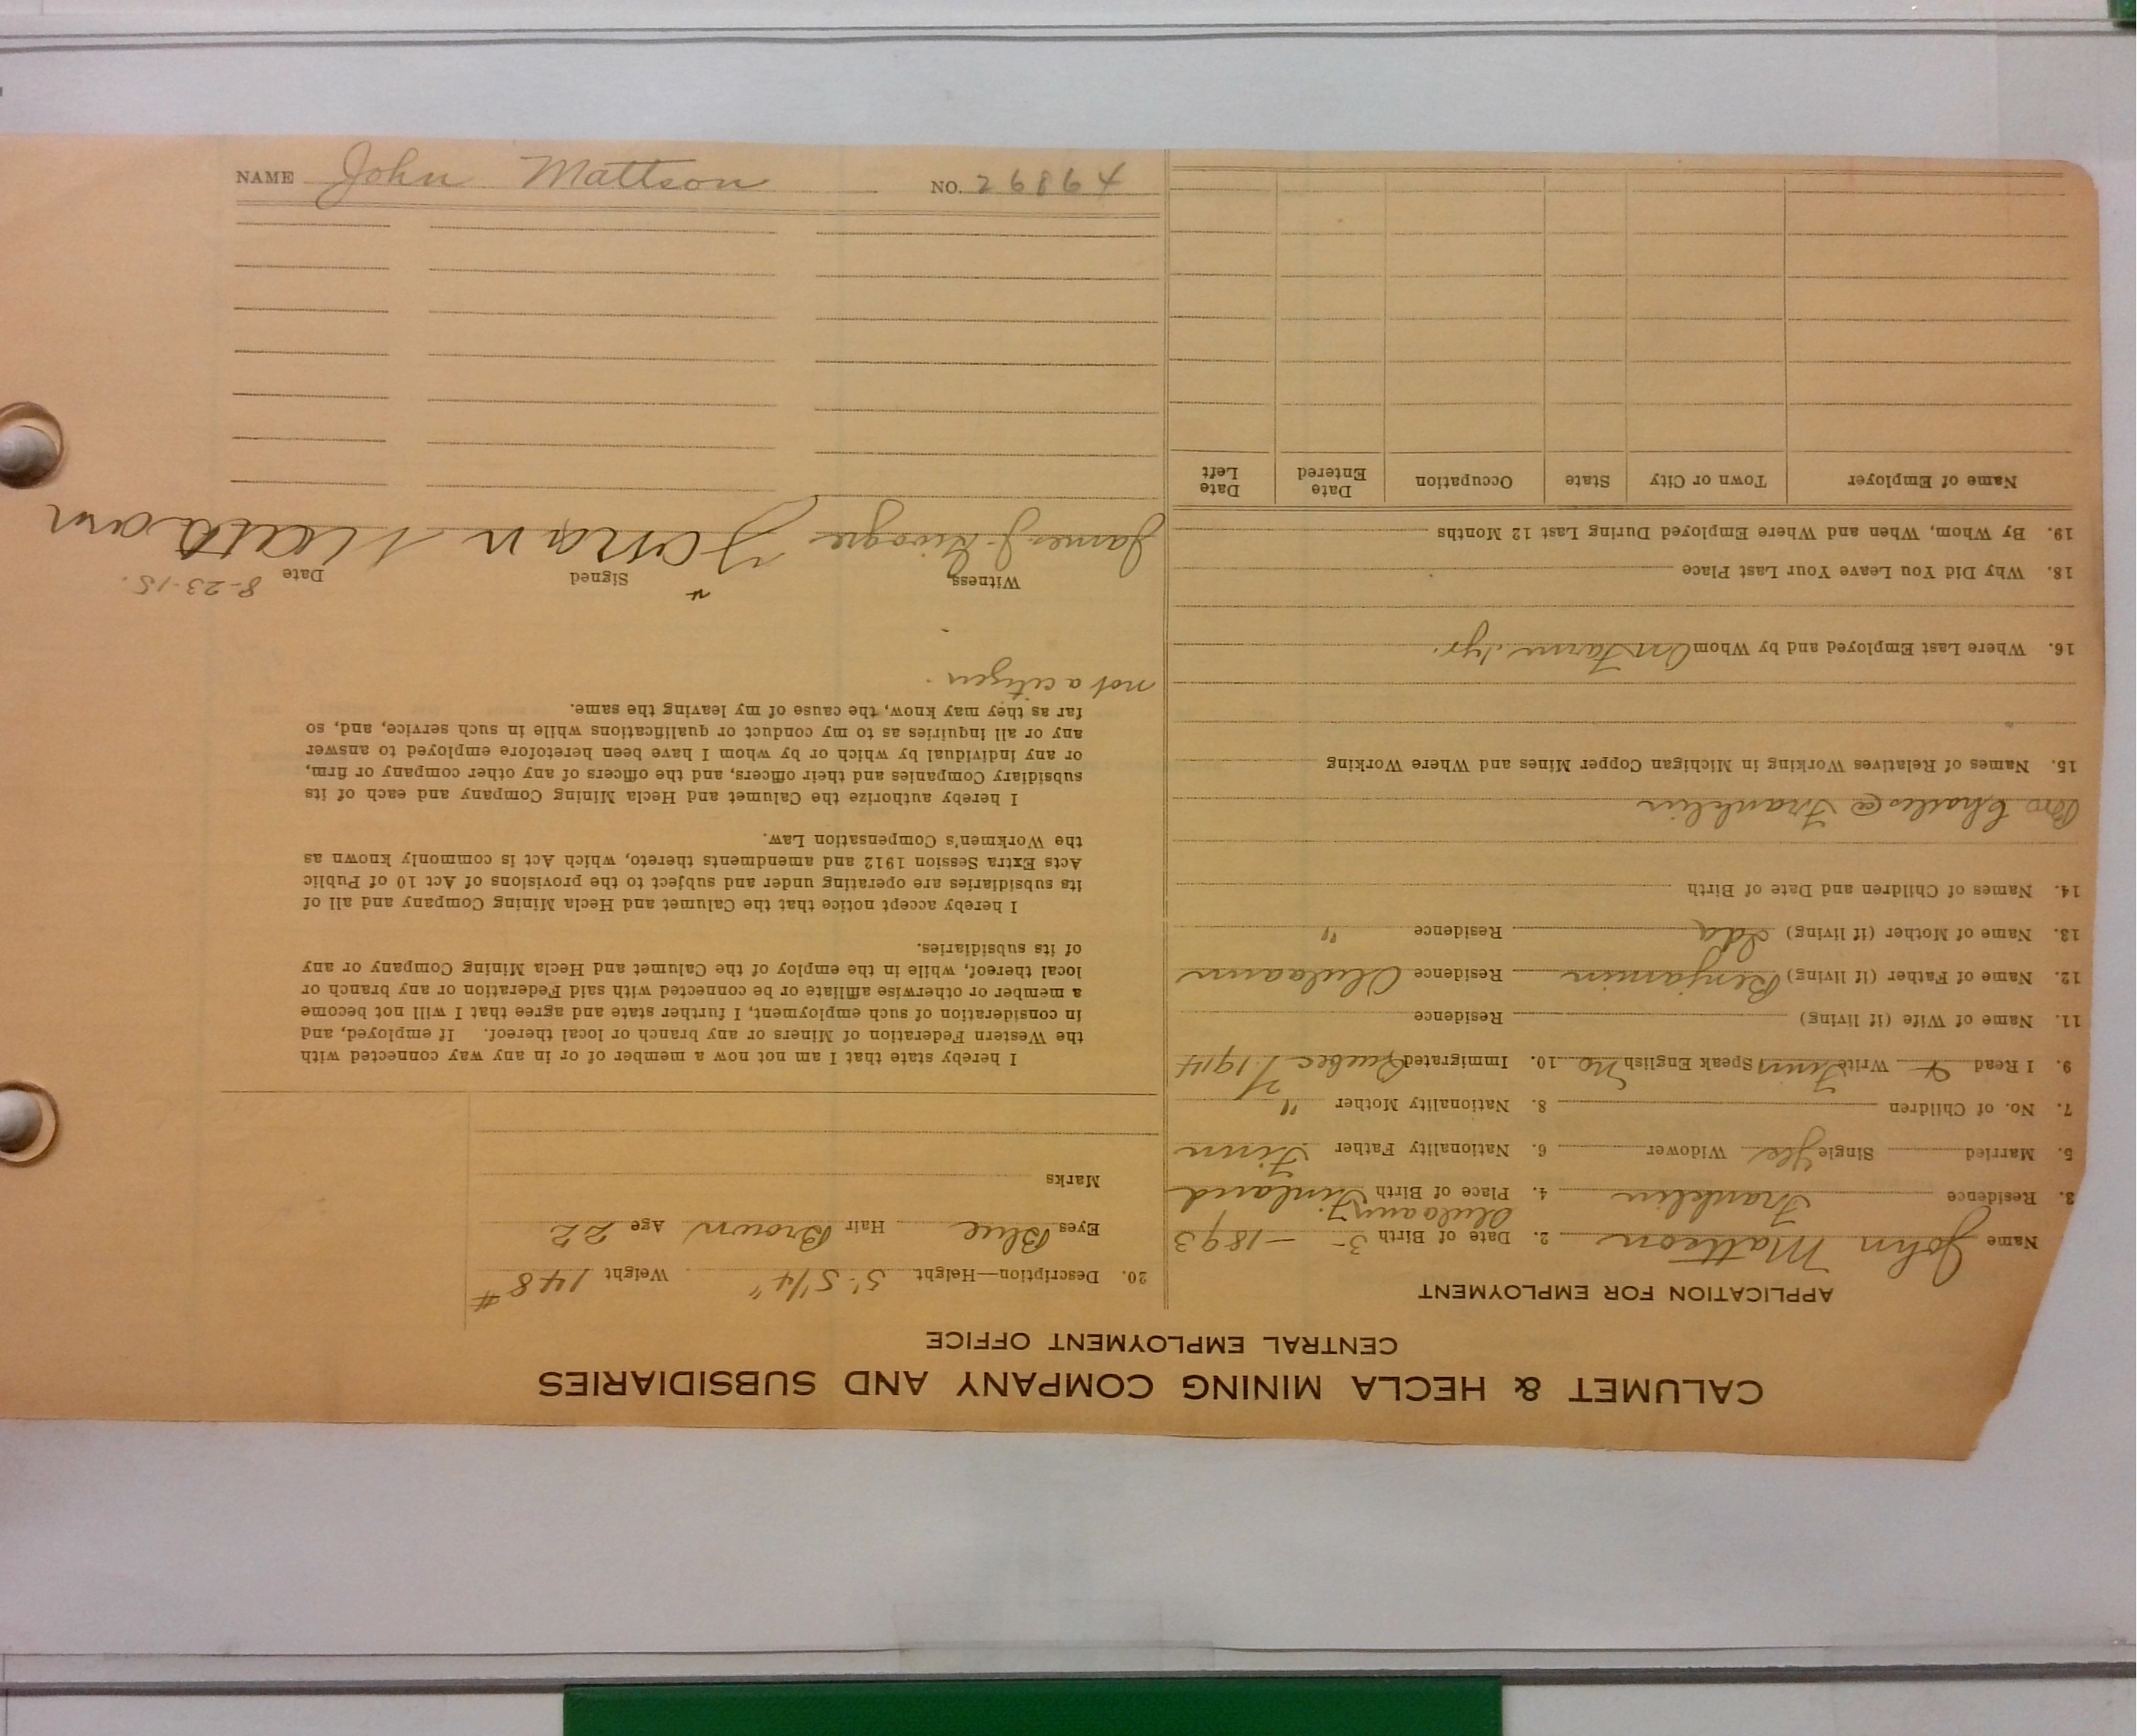 CALUMET & HECLA MINING COMPANY AND SUBSIDIARIES
CENTRAL EMPLOYMENT OFFICE
APPLICATION FOR EMPLOYMENT
Name John Mattson 2. Date of Birth 3- - 1893
3. Residence Franklin 4. Place of Birth Finland
5. Married Single Yes Widower 6. Nationality Father Finn
7. No. of Children 8. Nationality Mother "
9. I Read Write Finn Speak English No 10. Immigrated Quebec 1914
11. Name of Wife (if living) Residence
12. Name of Father (if living) Benjamin Residence
13. Name of Mother (if living) Ida Residence "
14. Names of Children and Date of Birth
Bro Charles @ Franklin
15. Names of Relatives Working in Michigan Copper Mines and Where Working
16. Where Last Employed and by Whom On Farm
18. Why Did You Leave Your Last Place
19. By Whom, When and Where Employed During Last 12 Months
Name of Employer Town or City State Occupation Date Entered Date Left
20. Description—Height 5'-5 1/4" Weight 148 #
Eyes Blue Hair Brown Age 22
Marks
I hereby state that I am not now a member of or in any way connected with
the Western Federation of Miners or any branch or local thereof. If employed, and
in consideration of such employment, I further state and agree that I will not become
a member or otherwise affiliate or be connected with said Federation or any branch or
local thereof, while in the employ of the Calumet and Hecla Mining Company or any
of its subsidiaries.
I hereby accept notice that the Calumet and Hecla Mining Company and all of
its subsidiaries are operating under and subject to the provisions of Act 10 of Public
Acts Extra Session 1912 and amendments thereto, which Act is commonly known as
the Workmen's Compensation Law.
I hereby authorize the Calumet and Hecla Mining Company and each of its
subsidiary Companies and their officers, and the officers of any other company or firm,
or any individual by which or by whom I have been heretofore employed to answer
any or all inquiries as to my conduct or qualifications while in such service, and, so
far as they may know, the cause of my leaving the same.
not a citizen.
Witness Signed Date 8-23-15.
James J.
NAME John Mattson NO. 26864